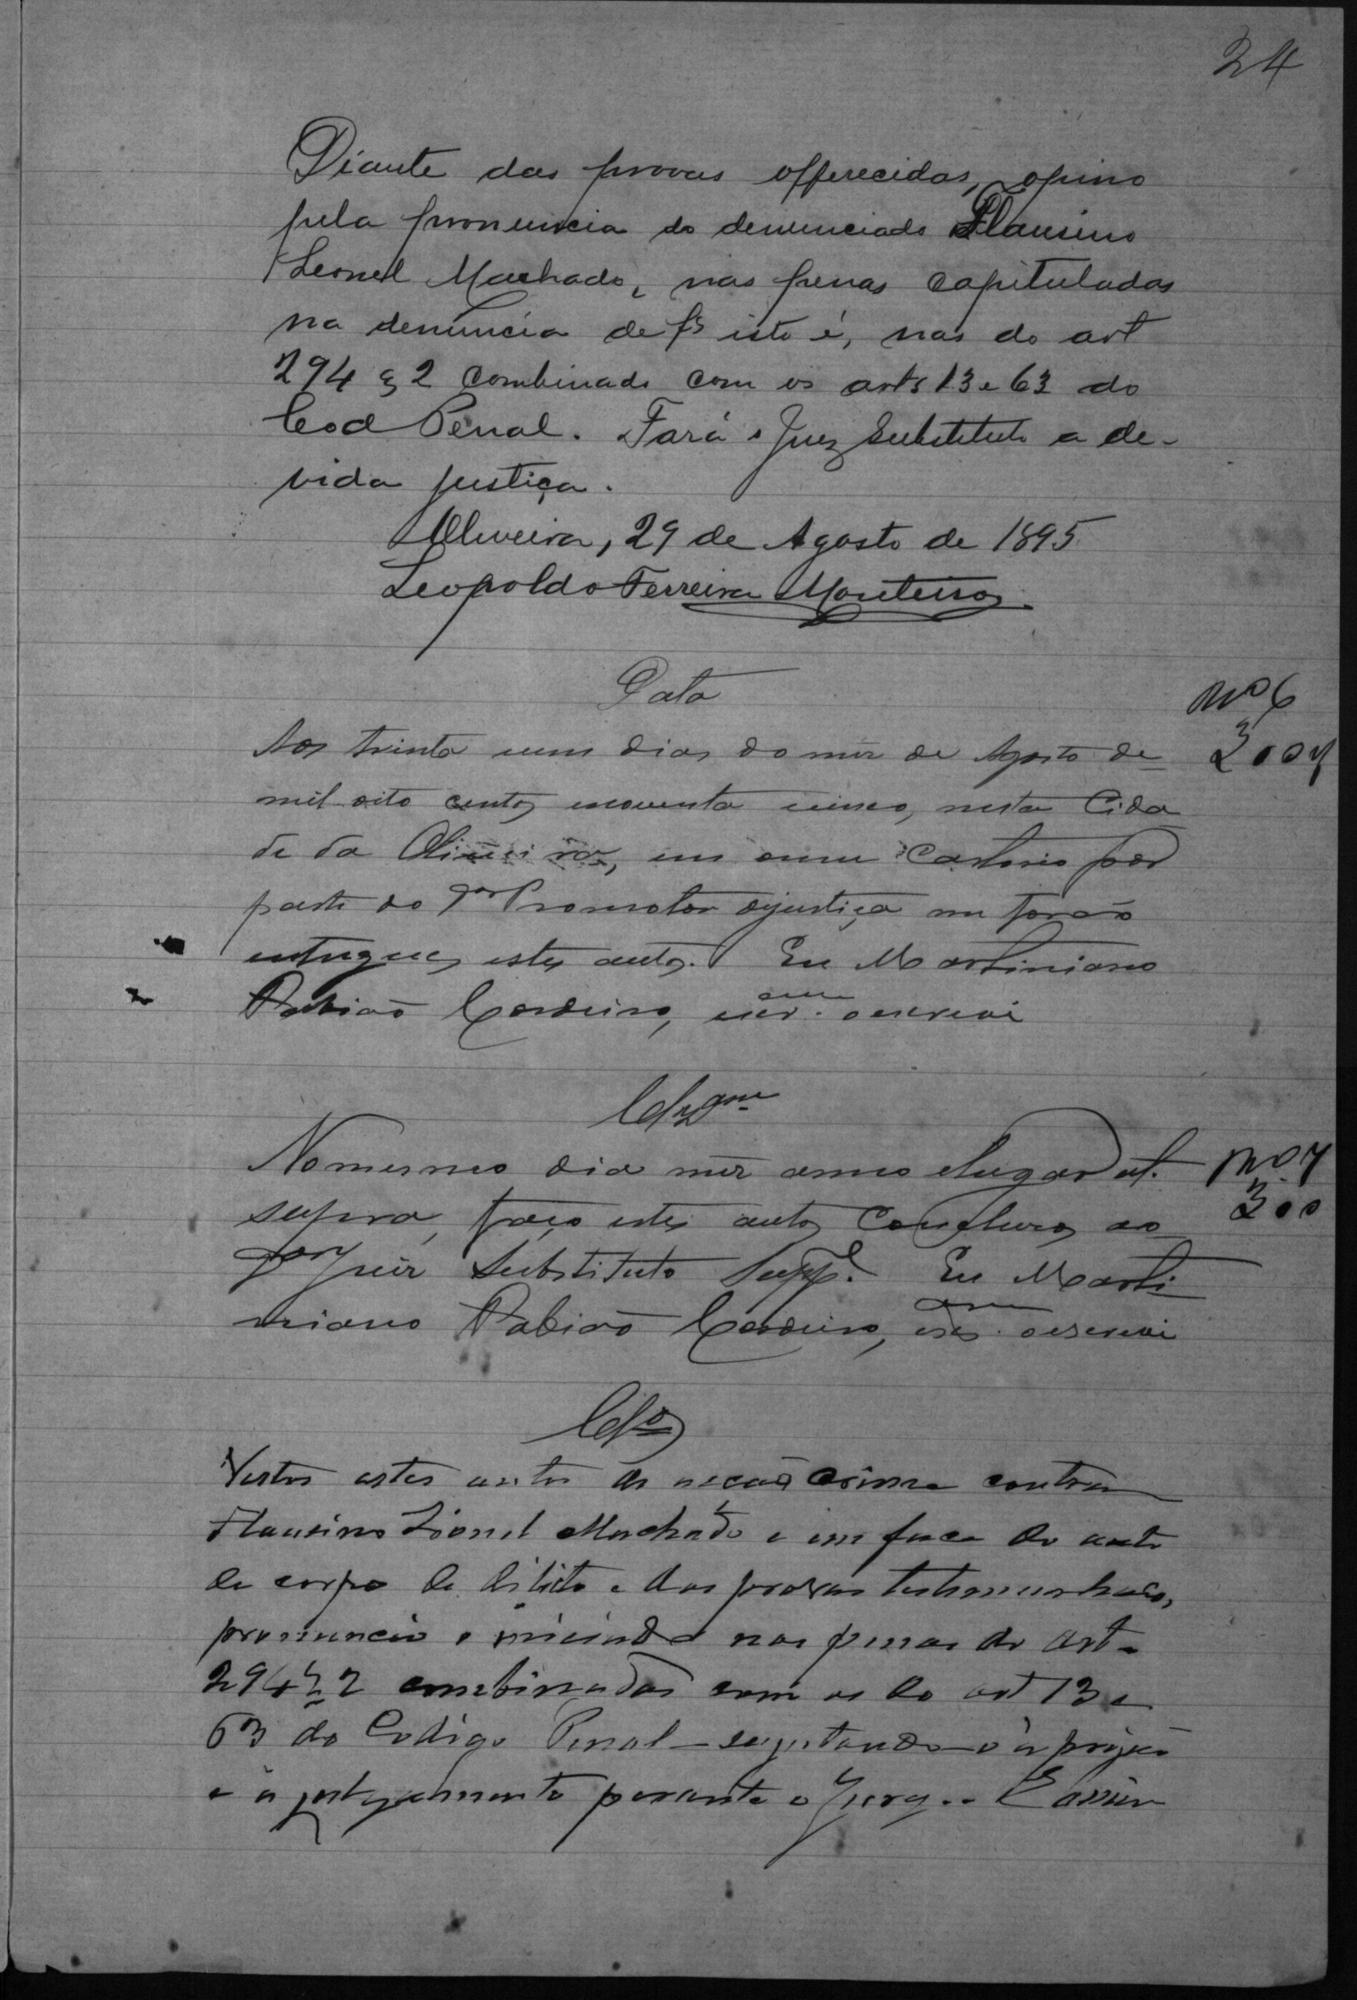 24
Diante das provas offerecidas, opino
pela pronuncia do denunciado Flausino
Leonel Machado, nas penas capituladas
na denuncia de fs isto é, nas do art
294 § 2 combinado com os arts 13 e 63 do
Cod Penal. Fará o Juiz Substituto a de-
vida justiça.
Oliveira, 29 de Agosto de 1895
Leopoldo Ferreira Monteiro
Data
Nº 6
Aos trinta um dias do mez de Agosto de
300
mil oito centos noventa cinco, nesta Cida
de da Oliveira, em meu Cartorio por
parte do Dor Promotor dejustiça me forão
entregues estes autos. Eu Martiniano
Pabião Cordeiro, escram o escrevi
Clzam
Nomesmo dia mez anno elugar ut.
Nº 7
supra, faço estes autos Conclusos ao
300
Dor Juiz Substituto Suppl. Eu Marti
niano Pabião Cordeiro, escram o escrevi
Clos
Vistos estes autos de acção crime contra
Flausino Lionel Machado e em face do auto
de corpo de delicto e das provas testemunhaes,
pronuncio o nas penas do art-
294 § 2 combinadas com as do art 13 e
63 do Codigo Penal – sugeitando-o á prisão
e a julgamento perante o Jury.